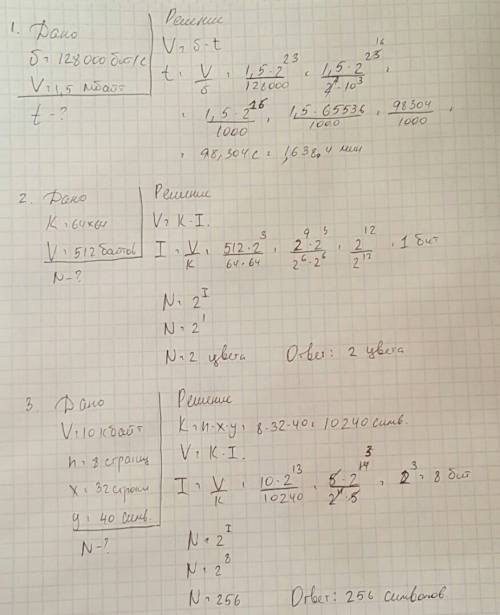 1. Дано
δ = 128000 бит/с
V = 1,5 Мбайт
t - ?
Решение
V = δ·t
t = V/δ = 1,5·2^23/128000 = 1,5·2^23 16/2^7·10^3 =
= 1,5·2^16/1000 = 1,5·65536/1000 = 98304/1000 =
= 98,304 с = 1,638,4 мин
2. Дано
K = 64×64
V = 512 байтов
N - ?
Решение
V = K·I.
I = V/K = 512·2^3/64·64 = 2^9·2^3/2^6·2^6 = 2^12/2^12 = 1 бит
N = 2^I
N = 2^1
N = 2 цвета Ответ: 2 цвета
3. Дано
V = 10 Кбайт
n = 8 страниц
x = 32 строки
y = 40 симв.
N - ?
Решение
K = n·x·y = 8·32·40 = 10240 симв.
V = K·I.
I = V/K = 10·2^13/10240 = 5·2^14 3/2^11·5 = 2^3 = 8 бит
N = 2^I
N = 2^8
N = 256 Ответ: 256 символов